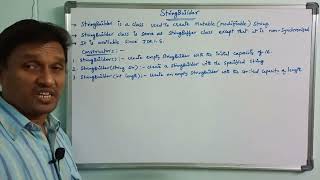 StringBuilder
→ StringBuilder is a class used to create Mutable (modifiable) String.
→ StringBuilder class is same as StringBuffer class except that it is non-synchronized
→ It is available since JDK 1.5.
Constructors :-
1. StringBuilder() :- Create empty StringBuilder with the initial capacity of 16.
2. StringBuilder(String str) :- Create a StringBuilder with the specified string
3. StringBuilder(int length) :- Create an empty StringBuilder with the specified capacity of length